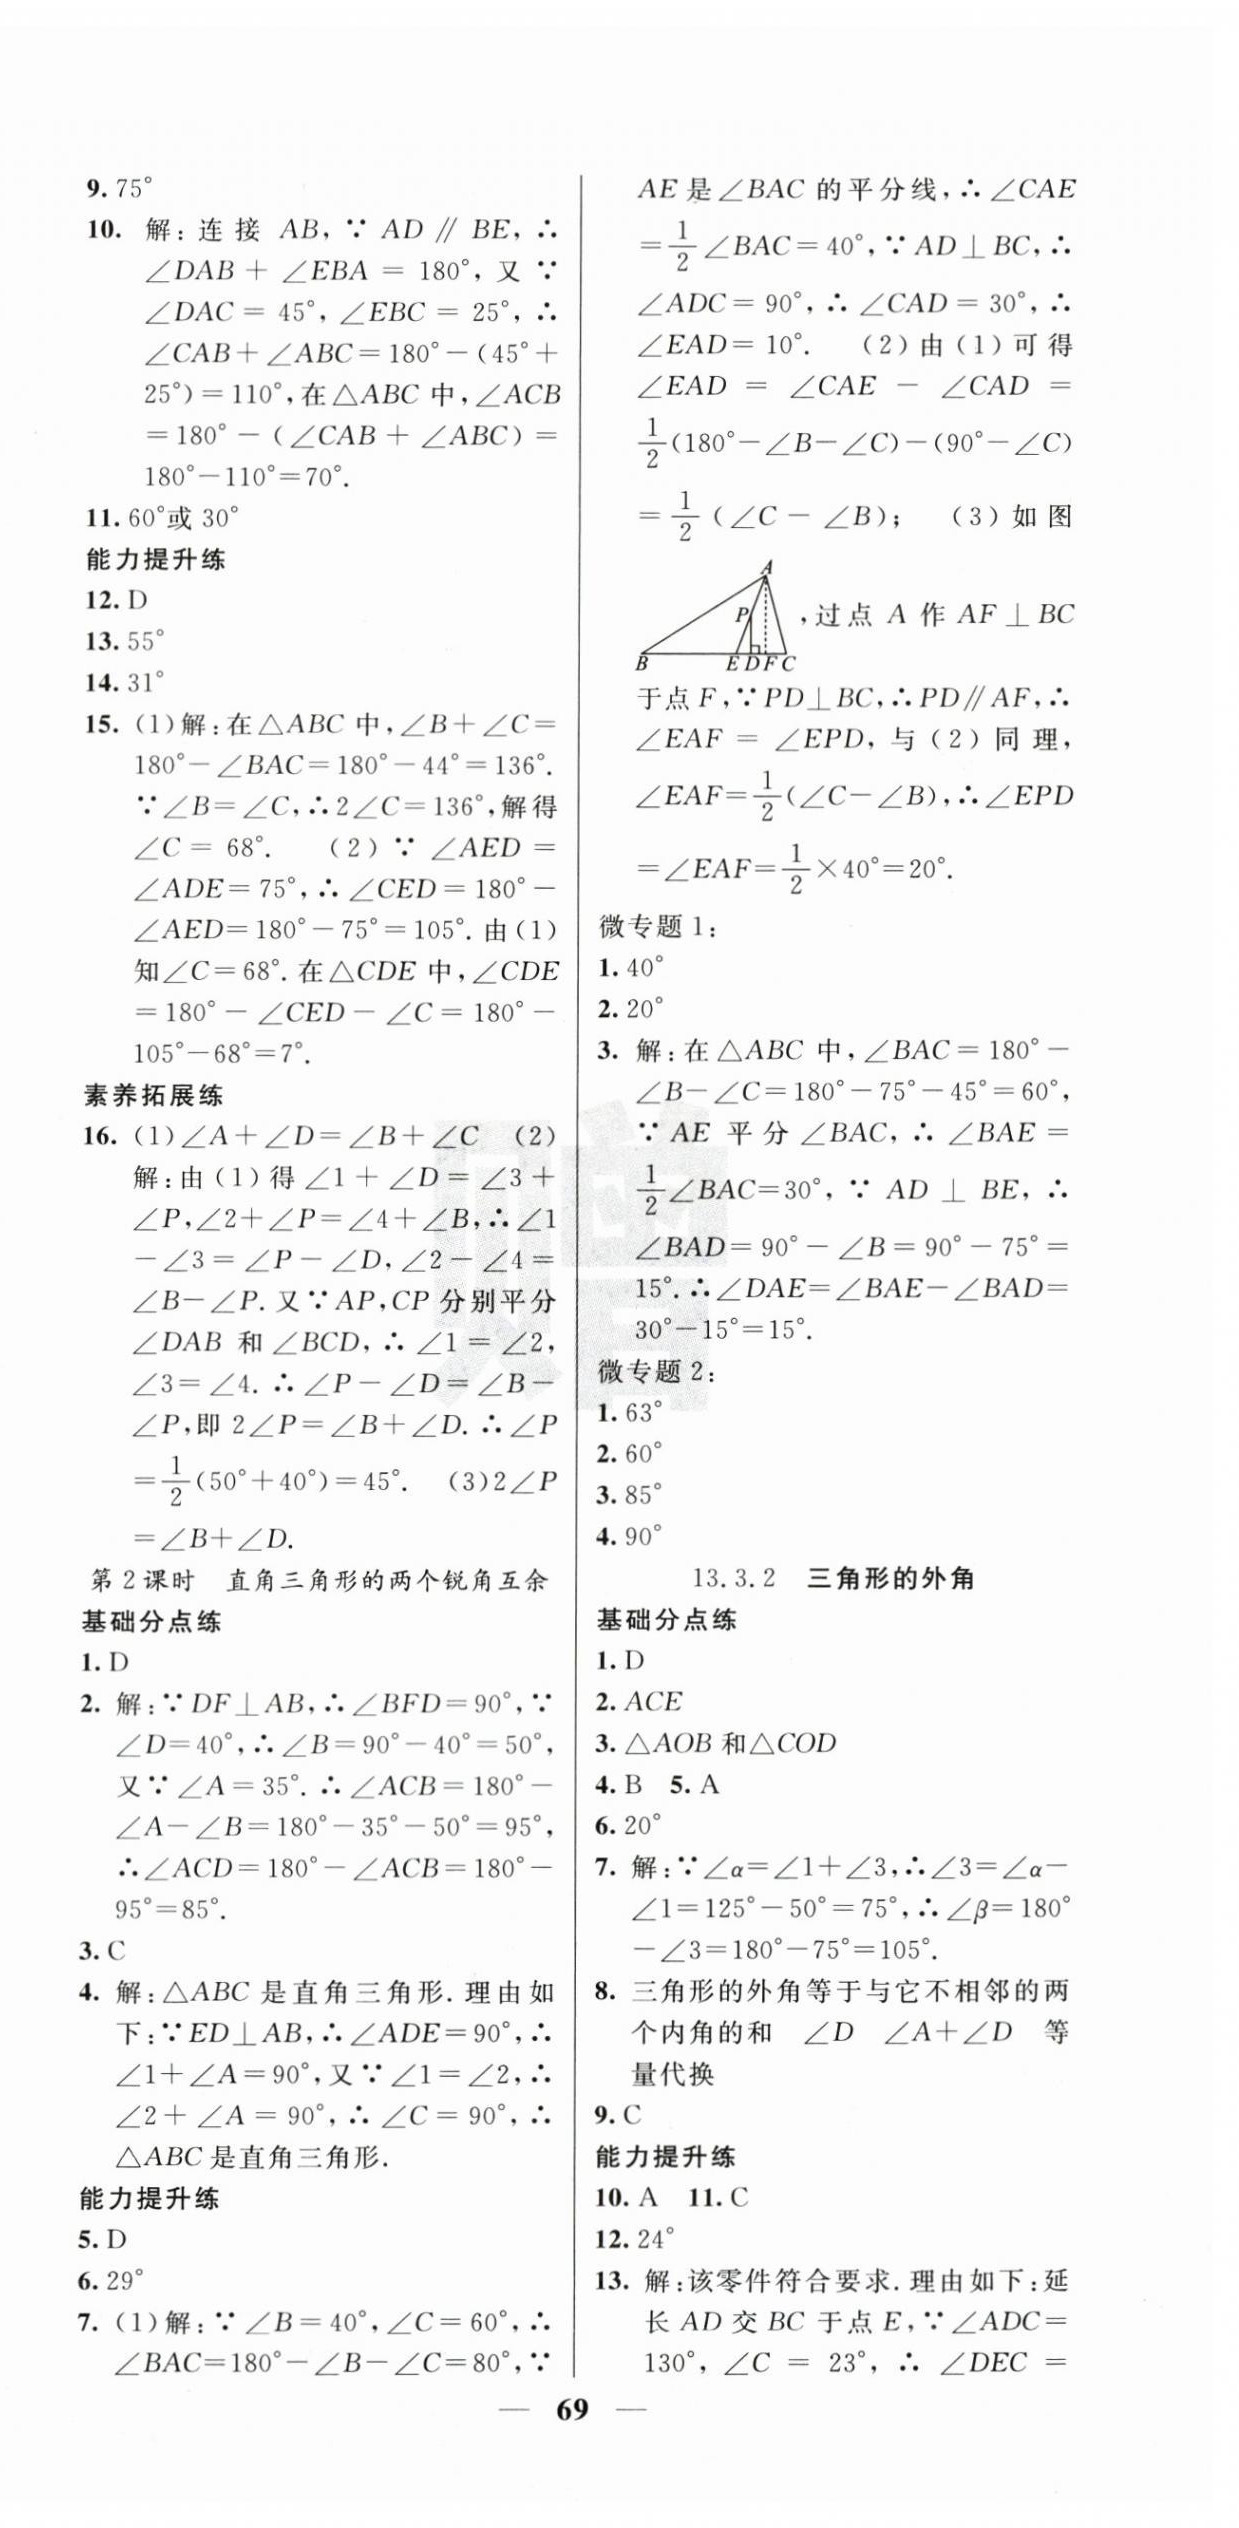 9. 75°
10. 解:连接 AB,∵ AD ∥ BE,∴
∠DAB + ∠EBA = 180°,又 ∵
∠DAC = 45°,∠EBC = 25°,∴
∠CAB+∠ABC=180°-(45°+
25°)=110°,在△ABC 中,∠ACB
=180°-(∠CAB + ∠ABC)=
180°-110°=70°.
11. 60°或 30°
能力提升练
12. D
13. 55°
14. 31°
15. (1)解:在△ABC 中,∠B+∠C=
180°-∠BAC=180°-44°=136°.
∵∠B=∠C,∴2∠C=136°,解得
∠C = 68°. (2)∵ ∠AED =
∠ADE=75°,∴∠CED=180°-
∠AED=180°-75°=105°.由(1)
知∠C=68°.在△CDE 中,∠CDE
=180°-∠CED-∠C=180°-
105°-68°=7°.
素养拓展练
16. (1)∠A+∠D=∠B+∠C (2)
解:由(1)得∠1+∠D=∠3+
∠P,∠2+∠P=∠4+∠B,∴∠1
-∠3=∠P-∠D,∠2-∠4=
∠B-∠P.又∵AP,CP 分别平分
∠DAB 和∠BCD,∴∠1=∠2,
∠3=∠4.∴∠P-∠D=∠B-
∠P,即 2∠P=∠B+∠D.∴∠P
=1/2(50°+40°)=45°. (3)2∠P
=∠B+∠D.
第2课时 直角三角形的两个锐角互余
基础分点练
1. D
2. 解:∵DF⊥AB,∴∠BFD=90°,∵
∠D=40°,∴∠B=90°-40°=50°,
又∵∠A=35°.∴∠ACB=180°-
∠A-∠B=180°-35°-50°=95°,
∴∠ACD=180°-∠ACB=180°-
95°=85°.
3. C
4. 解:△ABC 是直角三角形.理由如
下:∵ED⊥AB,∴∠ADE=90°,∴
∠1+∠A=90°,又∵∠1=∠2,∴
∠2+∠A=90°,∴∠C=90°,∴
△ABC 是直角三角形.
能力提升练
5. D
6. 29°
7. (1)解:∵∠B=40°,∠C=60°,∴
∠BAC=180°-∠B-∠C=80°,∵
AE 是∠BAC 的平分线,∴∠CAE
=1/2∠BAC=40°,∵AD⊥BC,∴
∠ADC=90°,∴∠CAD=30°,∴
∠EAD=10°. (2)由(1)可得
∠EAD = ∠CAE - ∠CAD =
1/2(180°-∠B-∠C)-(90°-∠C)
=1/2(∠C-∠B); (3)如图
A
P
B E D F C
,过点 A 作 AF⊥BC
于点 F,∵PD⊥BC,∴PD∥AF,∴
∠EAF=∠EPD,与(2)同理,
∠EAF=1/2(∠C-∠B),∴∠EPD
=∠EAF=1/2×40°=20°.
微专题1:
1. 40°
2. 20°
3. 解:在△ABC 中,∠BAC=180°-
∠B-∠C=180°-75°-45°=60°,
∵AE 平分∠BAC,∴∠BAE=
1/2∠BAC=30°,∵ AD ⊥ BE,∴
∠BAD=90°-∠B=90°-75°=
15°.∴∠DAE=∠BAE-∠BAD=
30°-15°=15°.
微专题2:
1. 63°
2. 60°
3. 85°
4. 90°
13.3.2 三角形的外角
基础分点练
1. D
2. ACE
3. △AOB 和△COD
4. B 5. A
6. 20°
7. 解:∵∠α=∠1+∠3,∴∠3=∠α-
∠1=125°-50°=75°,∴∠β=180°
-∠3=180°-75°=105°.
8. 三角形的外角等于与它不相邻的两
个内角的和 ∠D ∠A+∠D 等
量代换
9. C
能力提升练
10. A 11. C
12. 24°
13. 解:该零件符合要求.理由如下:延
长 AD 交 BC 于点 E,∵∠ADC=
130°,∠C = 23°,∴ ∠DEC =
— 69 —